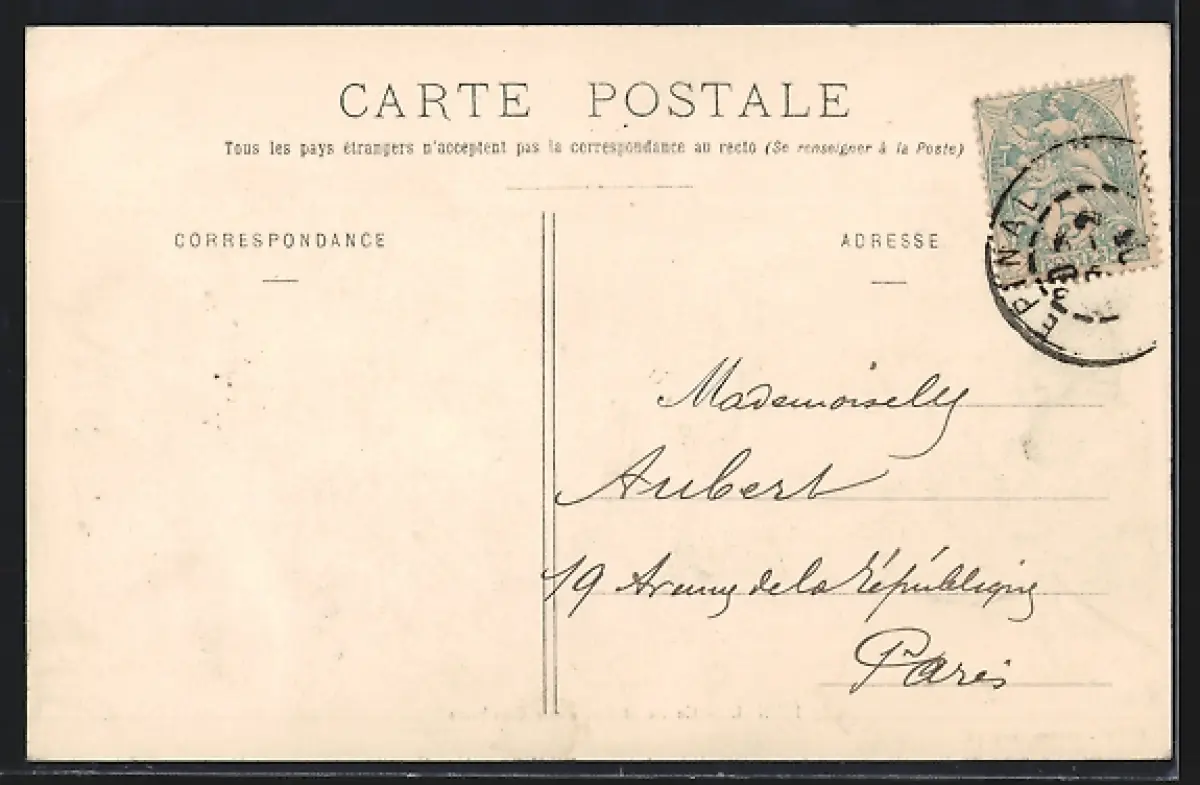 CARTE POSTALE
Tous les pays étrangers n'acceptent pas la correspondance au recto (Se renseigner à la Poste)
CORRESPONDANCE
ADRESSE
EPINAL
Mademoiselle
Aubert
19 Avenue de la République
Paris